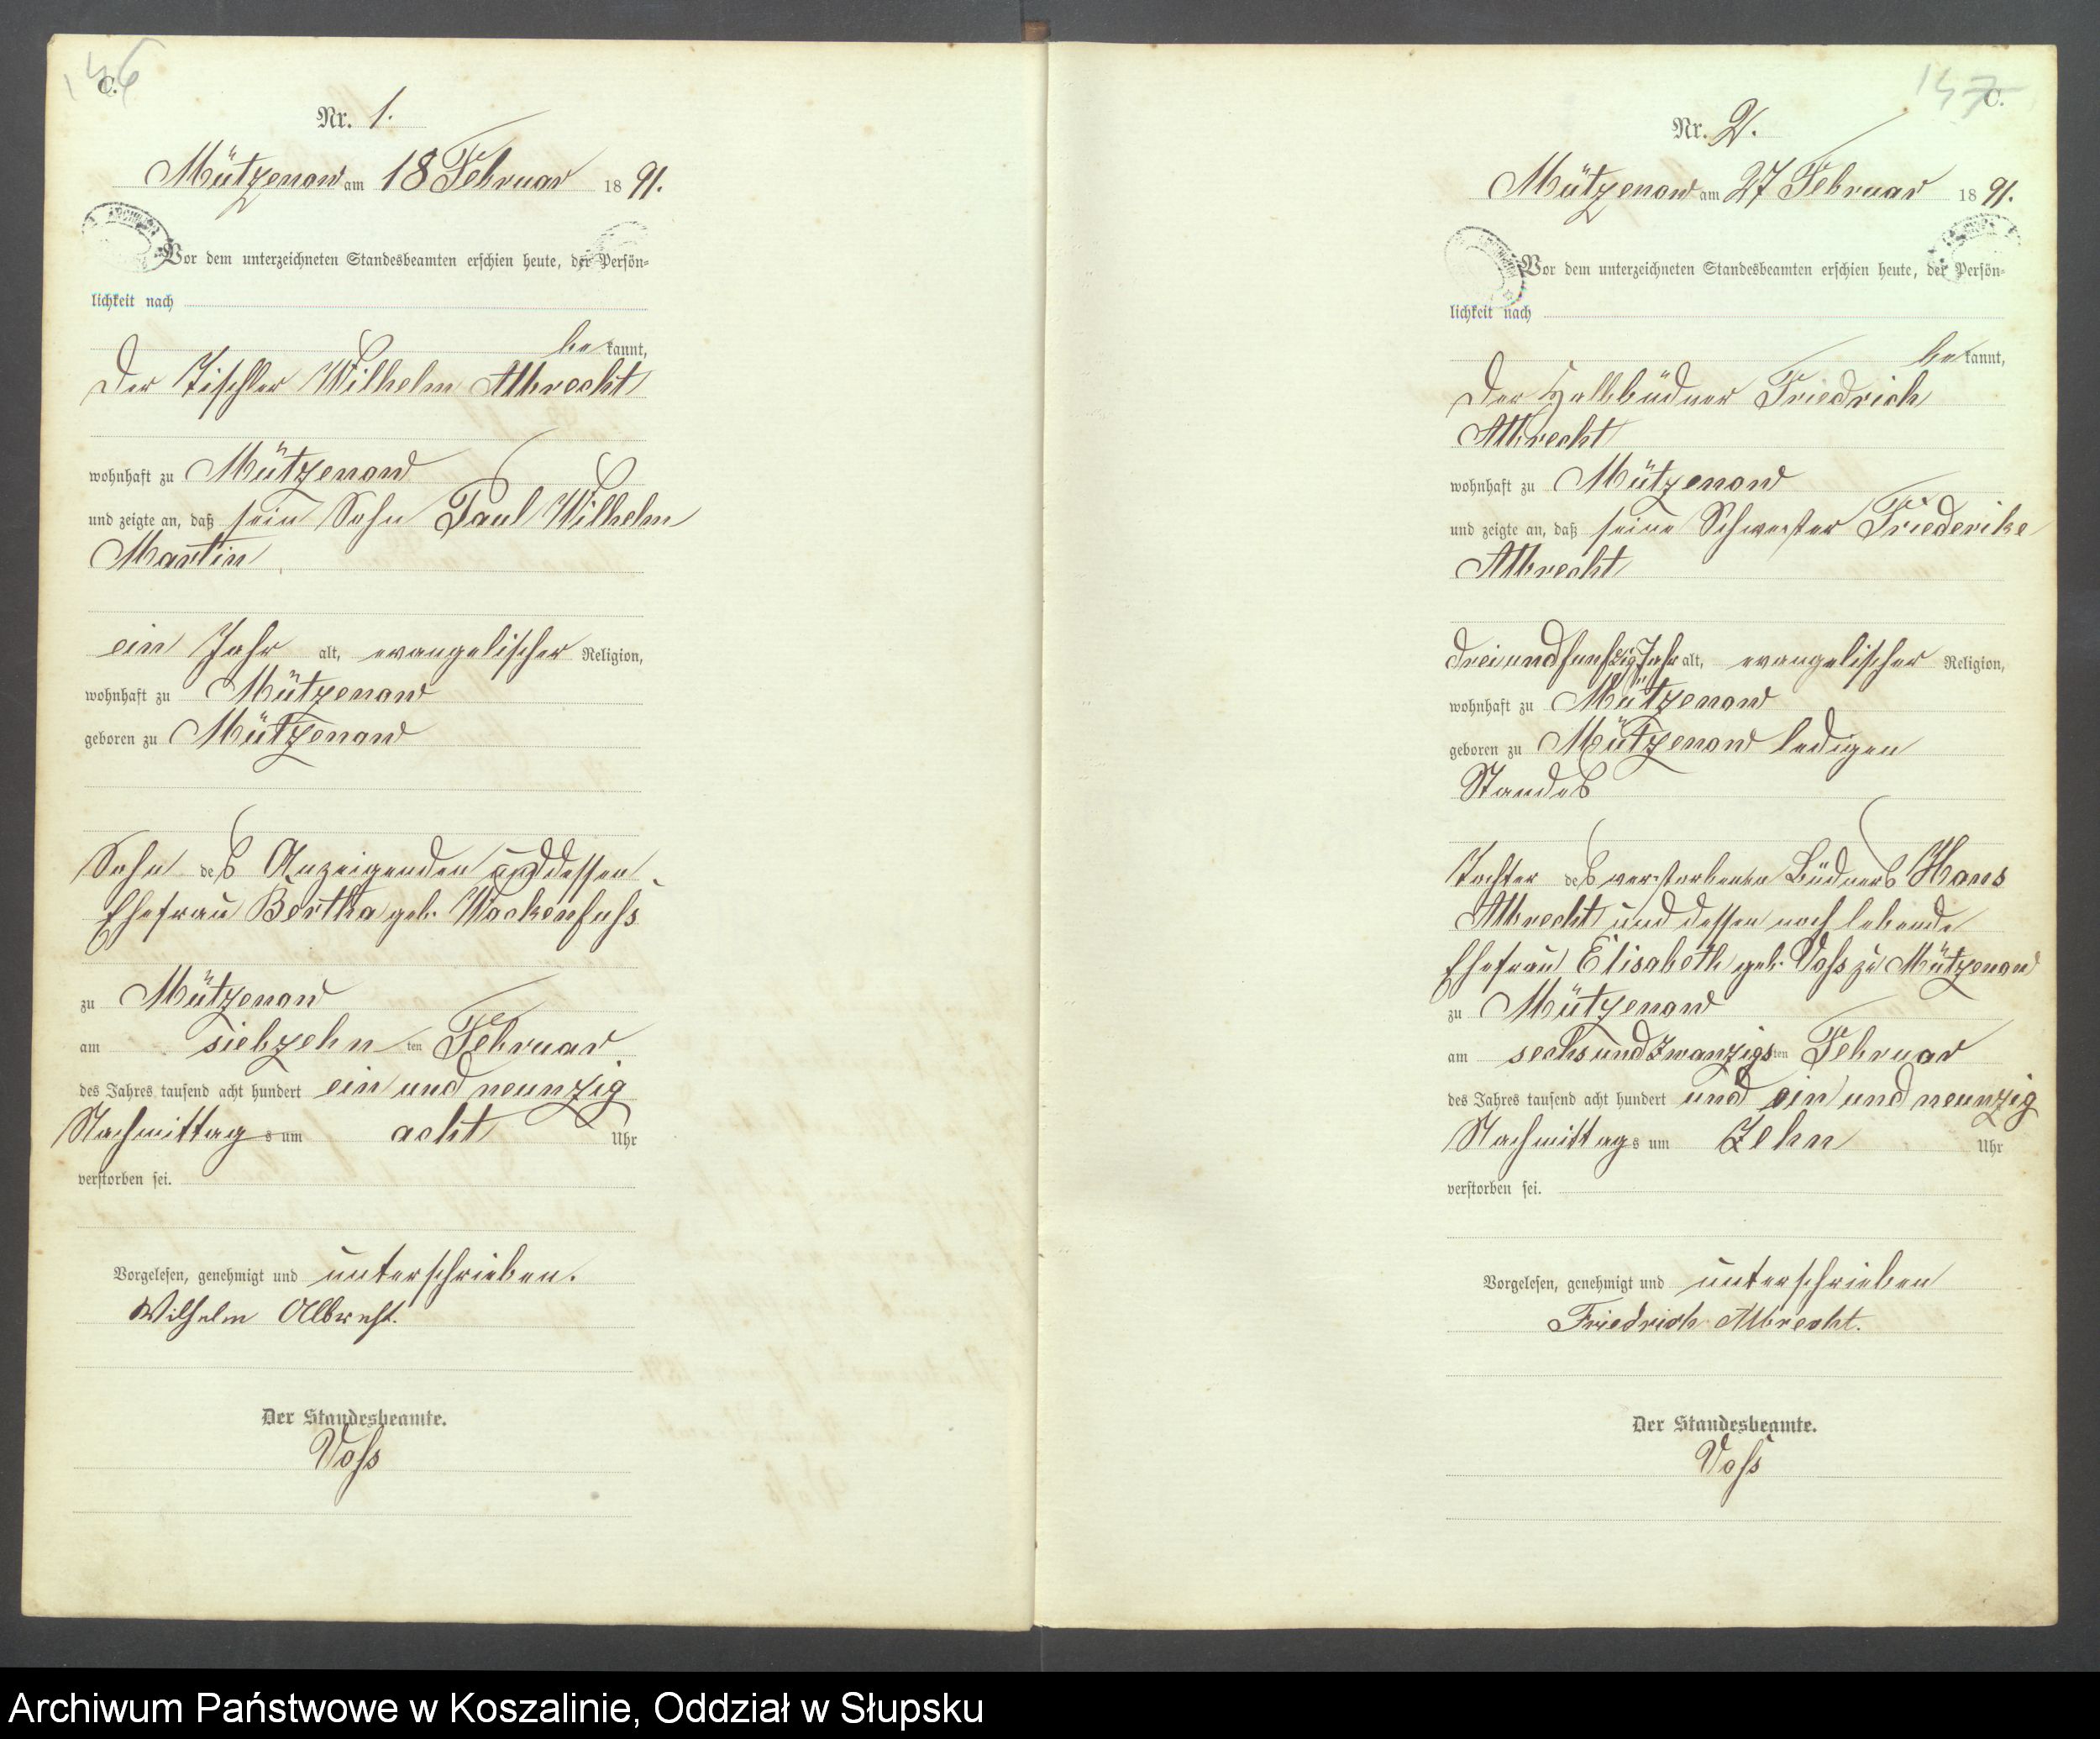 146
C.
Nr. 1.
Mützenow am 18 Februar 1891.
Vor dem unterzeichneten Standesbeamten erschien heute, der Persön-
lichkeit nach
be kannt,
der Tischler Wilhelm Albrecht
wohnhaft zu Mützenow
und zeigte an, daß sein Sohn Paul Wilhelm
Martin,
ein Jahr alt, evangelischer Religion,
wohnhaft zu Mützenow
geboren zu Mützenow
Sohn des Anzeigenden und dessen
Ehefrau Bertha geb. Wockenfuß
zu Mützenow
am siebzehn ten Februar
des Jahres tausend acht hundert ein und neunzig
Nachmittag s um acht Uhr
verstorben sei.
Vorgelesen, genehmigt und unterschrieben.
Wilhelm Albrecht.
Der Standesbeamte.
Voß
147
C.
Nr. 2.
Mützenow am 27 Februar 1891.
Vor dem unterzeichneten Standesbeamten erschien heute, der Persön-
lichkeit nach
be kannt,
der Halbbüdner Friedrich
Albrecht
wohnhaft zu Mützenow
und zeigte an, daß seine Schwester Friederike
Albrecht
dreiundfunfzig Jahr alt, evangelischer Religion,
wohnhaft zu Mützenow
geboren zu Mützenow ledigen
Standes
Tochter des verstorbenen Büdners Hans
Albrecht und dessen noch lebende
Ehefrau Elisabeth geb. Voß zu Mützenow
zu Mützenow
am sechsundzwanzigs ten Februar
des Jahres tausend acht hundert und ein und neunzig
Nachmittag s um Zehn Uhr
verstorben sei.
Vorgelesen, genehmigt und unterschrieben
Friedrich Albrecht.
Der Standesbeamte.
Voß
Archiwum Państwowe w Koszalinie, Oddział w Słupsku